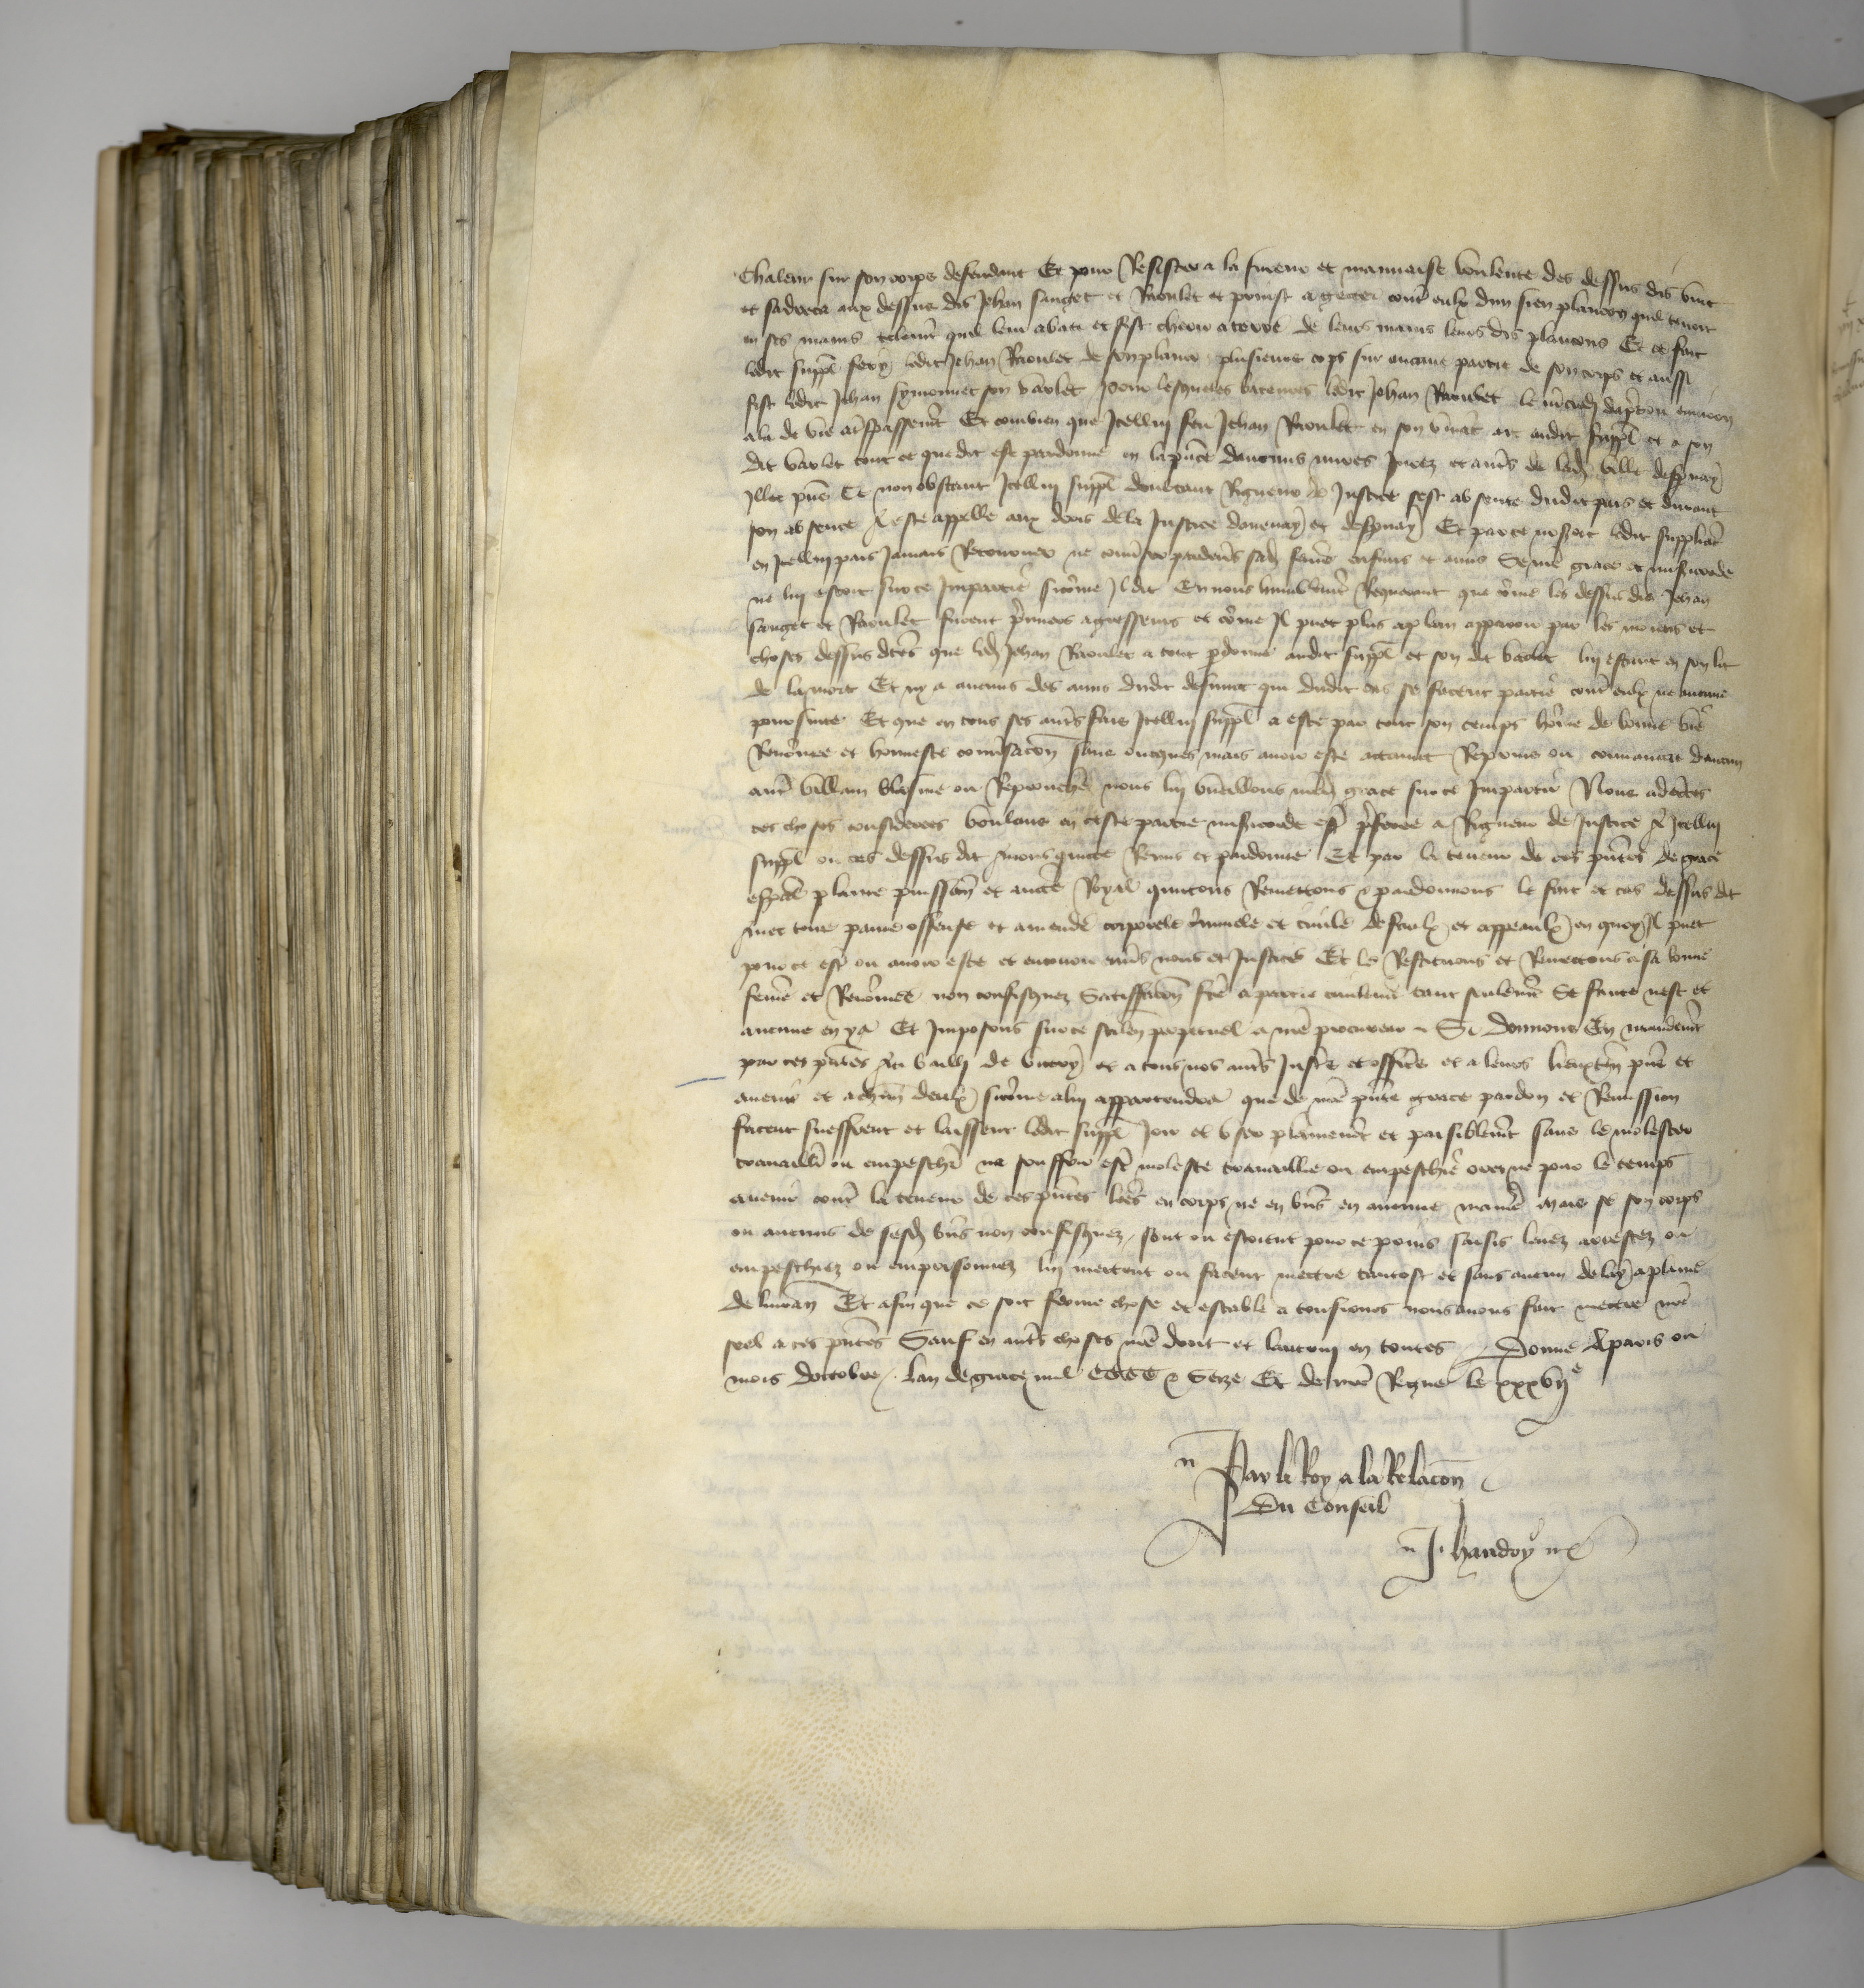 Chaleur sur son corps defendant Et pour Resister a la fureur et mauvaise voulente des dessus dis vint
et sadreca aux dessus dis Jehan sauget et Raoulet et prinst a geter contr eulx dun sien plancon quil tenoit
en ses mains telemt quil leur abati et fist cheoir a terre de leurs mains leurs dis plancons Et ce fait
ledit suppl fery ledit Jehan Raoulet de son plancon plusieurs cops sur aucune partie de son corps et aussi
fist ledit Jehan symonnet son varlet pour lesqueles bateures ledit Jehan Raoulet le mcredi dapres ou environ
ala de vie a trespassemt Et combien que Icellui feu Jehan Raoulet en son vivant ait audit suppl et a son
dit varlet tout ce que dit est pardonne en la pnce daucuns maires Jurez et autrs de ladi ville despnay
Illec pns Et non obstant Icellui suppl doubtant Rigueur de Justice sest absente dudit pais et durant
son absence a este appelle aux drois de la Justice et despnay Et par ce noseroit ledit suppliat
en Icellui pais Jamais Retourner ne convser pardevs sadi feme enfans et amis Se nre grace et misericorde
ne lui estoit sur ce Impartie sicome Il dit En nous humblemt Requerant que come les dessus dis Jehan
sauget et Raoulet furent premiers agresseurs et come Il puet plus aplain apparoir par les moiens et
choses dessus dctes que ledi Jehan Raoulet a tout pdonne audit suppl et son dit varlet lui estant en son lit
de la mort Et ny a aucuns des amis dudit defunct qui dudit cas se facent partie contr eulx ne aucune
poursuite Et que en tous ses autrs fais Icellui suppl a este par tout son temps home de bonne vie
Renomee et honneste convsacon sans oncques mais avoir este attaint Reprins ou convaincu daucun
autr villain blasme ou Reprouche nous lui vueillions nredi grace sur ce Impartir Nous adcertes
ces choses considerees voulans en ceste partie misericorde estr preferee a Rigueur de Justice A Icellui
suppl ou cas dessus dit avons quicte Remis et pardonne Et par la teneur de ces pntes de grace
especl plaine puissan et aucte Royal quictons Remettons & pardonnons le fait et cas dessus dit
avec toute paine offense et amende corporele criminele et civile defaulx et appeaulx en quoy Il puet
pour ce estr ou avoir este et encouru envrs nous et Justice Et le Restituons et Remettons a sa bonne
feme et Renomee non confisquez Satisfacon fte a partie civilemt tant seulemt Se faicte nest et
aucune en y a Et Imposons sur ce scilen perpetuel a nre procureur Si donnons En mandemt
par ces pntes Au bailli de vitry et a tous nos autrs Justic et offics et a leurs lieuxten pns et
avenir et a chun deulx sicome a lui appartendra que de nre pnte grace pardon et Remission
facent sueffrent et laissent ledit suppl Joir et user plainemt et paisiblemt sans le molester
travaillr ou empeschr ne souffrir estr moleste travaillie ou empeschie ores ne pour le temps
avenir contr la teneur de ces pntes lres en corps ne en bns en aucune manie Mais se son corps
ou aucuns de sesdi bns non confisquez sont ou estoient pour ce prins saisis levez arrestez ou
empeschiez ou emprisonnez lui mettent ou facent mettre tantost et sans aucun delay a plaine
delivran Et afin que ce soit ferme chose et estable a tousiours nous avons fait mettre nre
seel a ces pntes Sauf en autrs choses nre droit et lautrui en toutes Donne A paris ou
mois doctobre lan de grace mil cccc & Seze Et de nre Regne le xxxvije
Par le Roy a la Relacon
Du Conseil